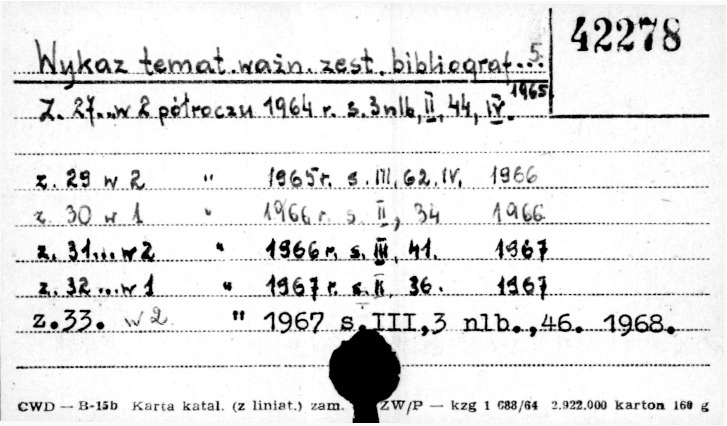 42278
Wykaz temat. ważn. zest. bibliograf... 5.
Z. 27... w 2 półroczu 1964 r. s. 3 nlb, II, 44, IV. 1965
z. 29 w 2 " 1965 r. s. III, 62, IV. 1966
z. 30 w 1 " 1966 r. s. II, 34 1966
z. 31... w 2 " 1966 r. s. III, 41. 1967
z. 32... w 1 " 1967 r. s. II, 36. 1967
z.33. w 2 " 1967 s. III,3 nlb.,46. 1968.
CWD — B-15b Karta katal. (z liniat.) zam. ZW/P — kzg 1 688/64 2.922.000 karton 160 g